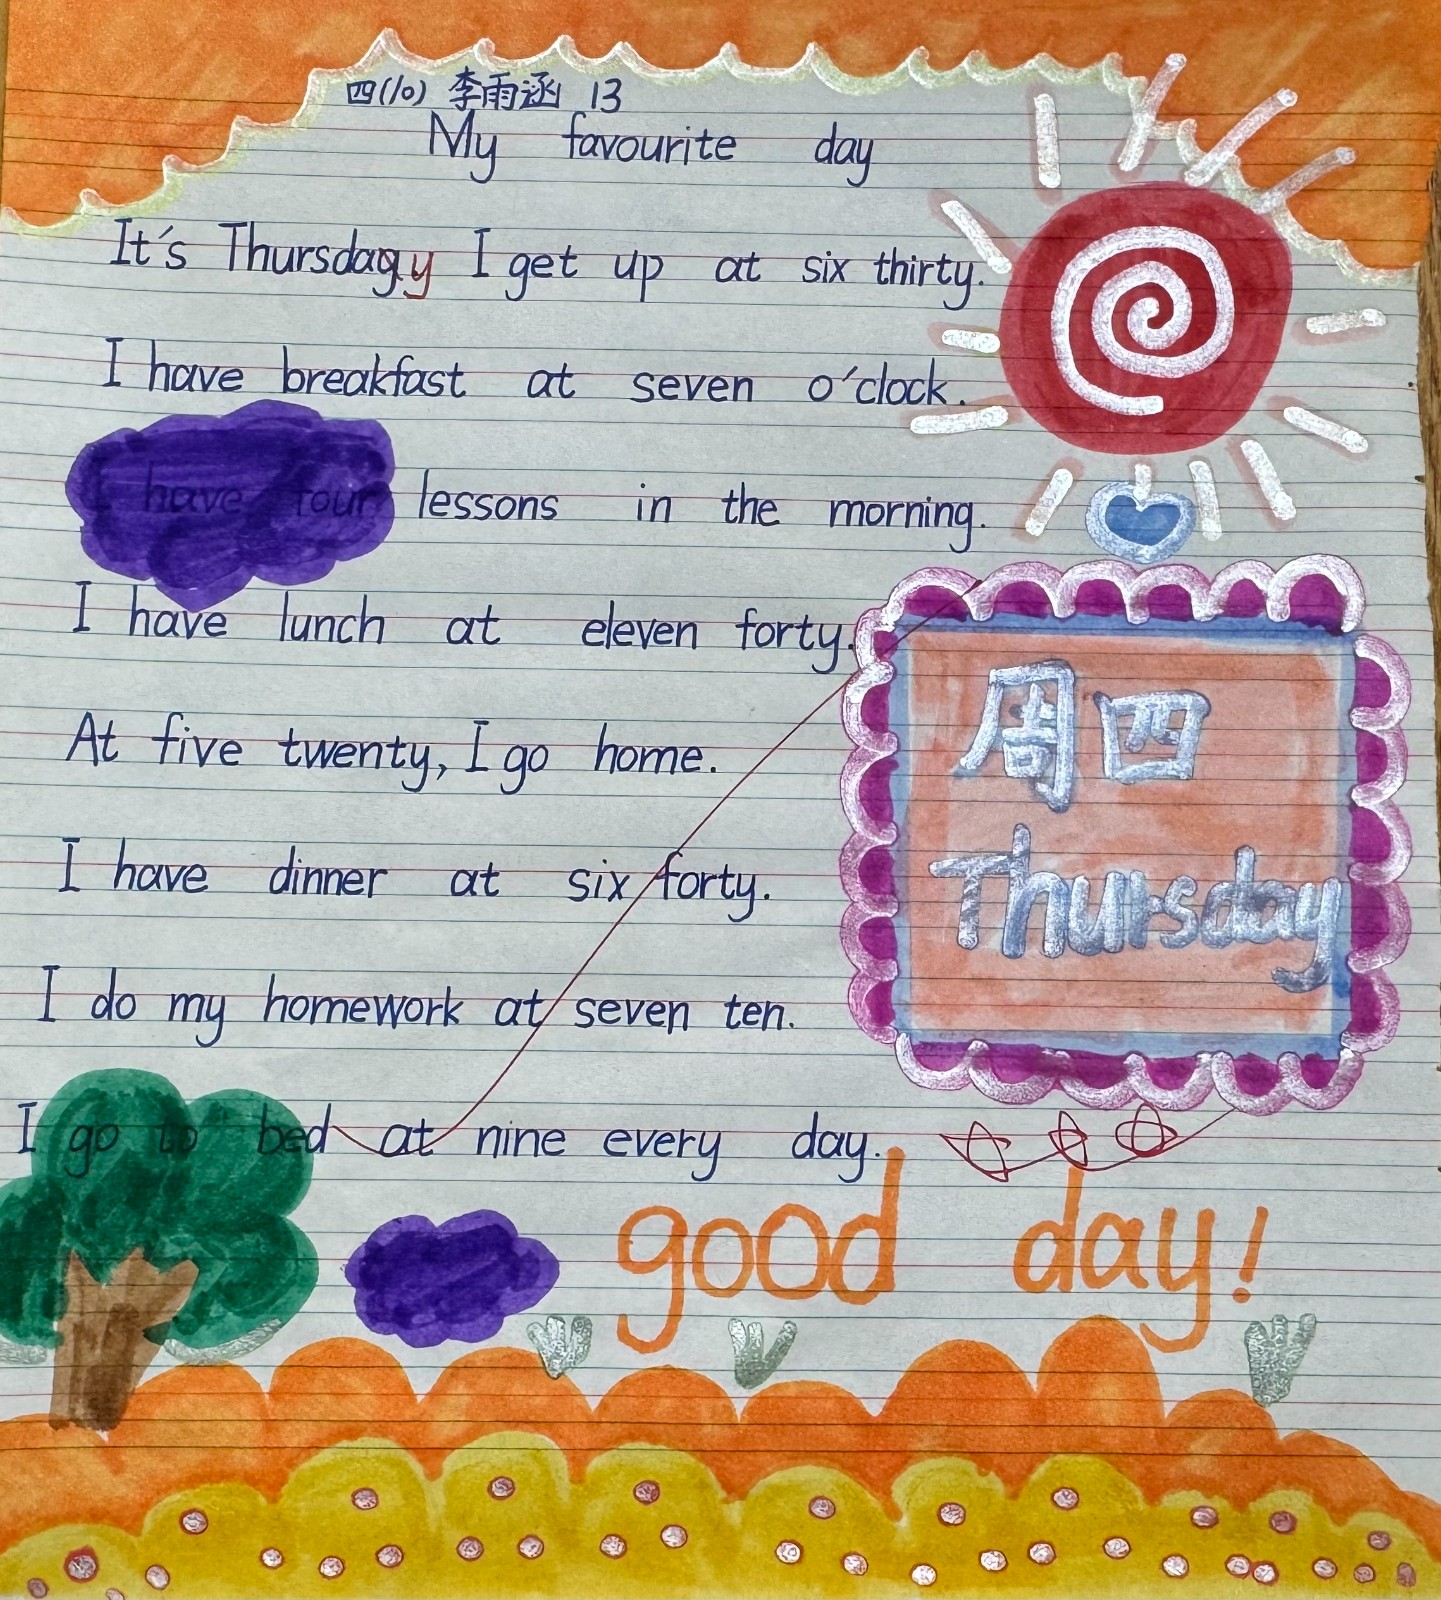 四(10) 李雨涵 13
My favourite day
It's Thursday I get up at six thirty.
I have breakfast at seven o'clock.
I have four lessons in the morning.
I have lunch at eleven forty.
At five twenty, I go home.
I have dinner at six forty.
I do my homework at seven ten.
I go to bed at nine every day.
周四
Thursday
good day!